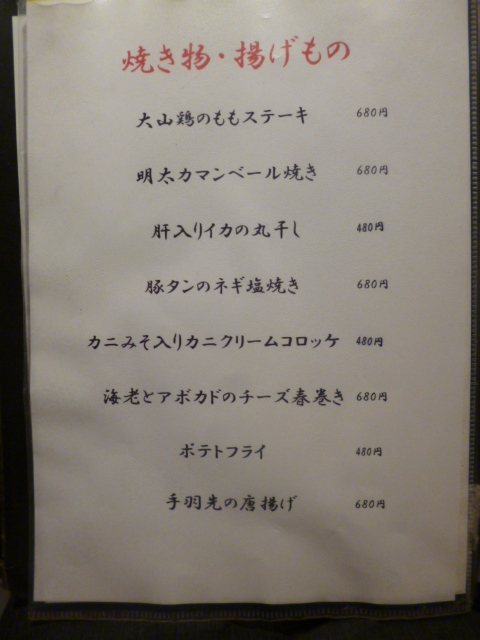 焼き物・揚げもの
大山鶏のももステーキ 680円
明太カマンベール焼き 680円
肝入りイカの丸干し 480円
豚タンのネギ塩焼き 680円
カニみそ入りカニクリームコロッケ 480円
海老とアボカドのチーズ春巻き 680円
ポテトフライ 480円
手羽先の唐揚げ 680円